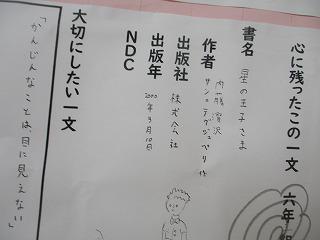 心に残ったこの一文 六年 組
書名 星の王子さま
作者 内藤 濯訳
サン=テグジュペリ 作
出版社 株式会社
出版年 2000年3月10日
NDC
大切にしたい一文
「かんじんなことは、目に見えない」